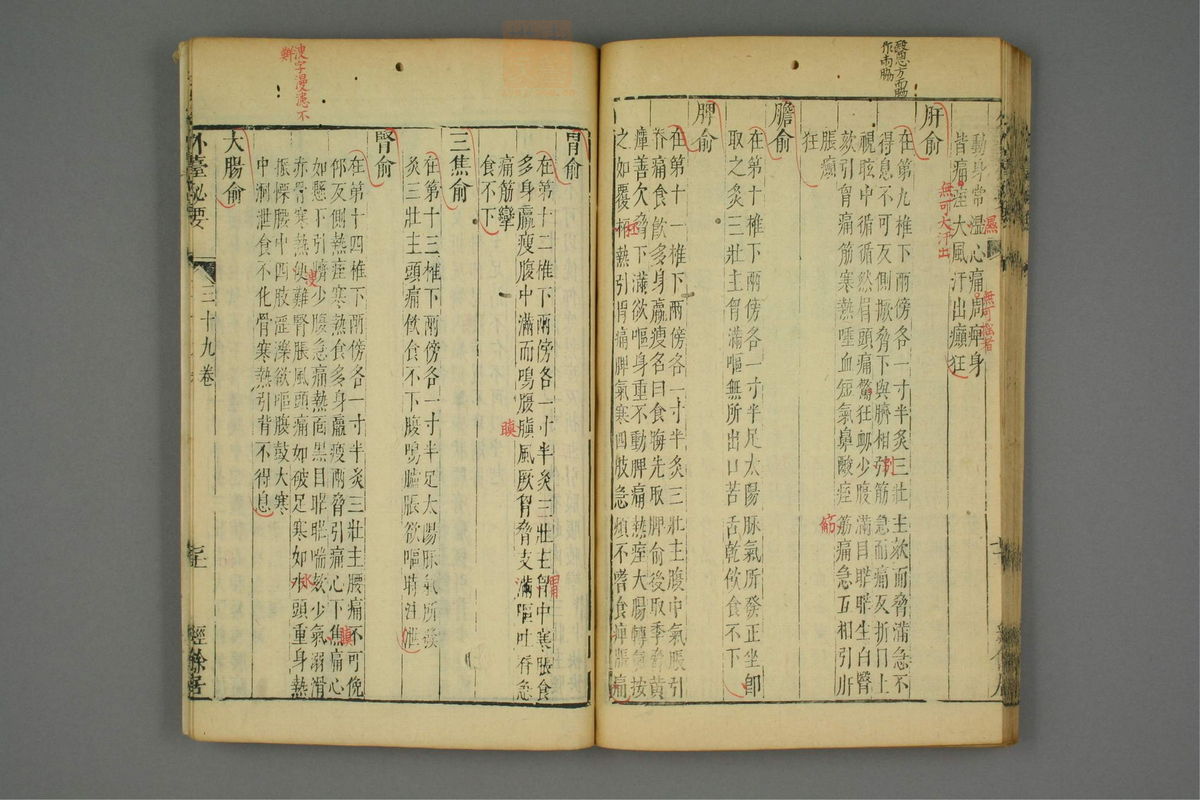 動身常濕心痛周痺身
皆痛痓大風汗出癲狂
濕
無可大汗出
無可癌者
肝俞
在第九椎下兩傍各一寸半灸三壯主欬而脅滿急不
得息不可反側撅脅下與臍相引筋急而痛反折目上
視眩中循循然眉頭痛驚狂衄少腹滿目䀮䀮生白翳
欬引胷痛筋寒熱唾血短氣鼻酸痓筋痛急互相引肝
脹癲
狂
引
筋
膽俞
在第十椎下兩傍各一寸半足太陽脉氣所發正坐卽
取之灸三壯主胷滿嘔無所出口苦舌乾飲食不下
脾俞
在第十一椎下兩傍各一寸半灸三壯主腹中氣脹引
脊痛食飲多身羸瘦名曰食晦先取脾俞後取季脅黃
癉善欠脅下滿欲嘔身重不動脾痛熱痓大腸轉氣按
之如覆杯熱引胃痛脾氣寒四肢急煩不嗜食痺脹痛
胃俞
在第十二椎下兩傍各一寸半灸三壯主胃中寒脹食
多身羸瘦腹中滿而鳴腹䐜風厥胷脅支滿嘔吐脊急
痛筋攣
食不下
胃
䐜
三焦俞
在第十三椎下兩傍各一寸半足太陽脉氣所發
灸三壯主頭痛飲食不下腹鳴臚脹欲嘔時注泄
腎俞
在第十四椎下兩傍各一寸半灸三壯主腰痛不可俛
仰反側熱痓寒熱食多身羸瘦兩脅引痛心下焦痛心
如懸下引臍少腹急痛熱面黑目䀮䀮喘欬少氣溺濁
赤骨寒熱便難腎脹風頭痛如破足寒如水頭重身熱
振慄腰中四肢淫濼欲嘔腹鼓大寒
中洞泄食不化骨寒熱引背不得息
溲
水
溲字漫漶不
鮮
大腸俞
外臺秘要
三十九卷
經餘居